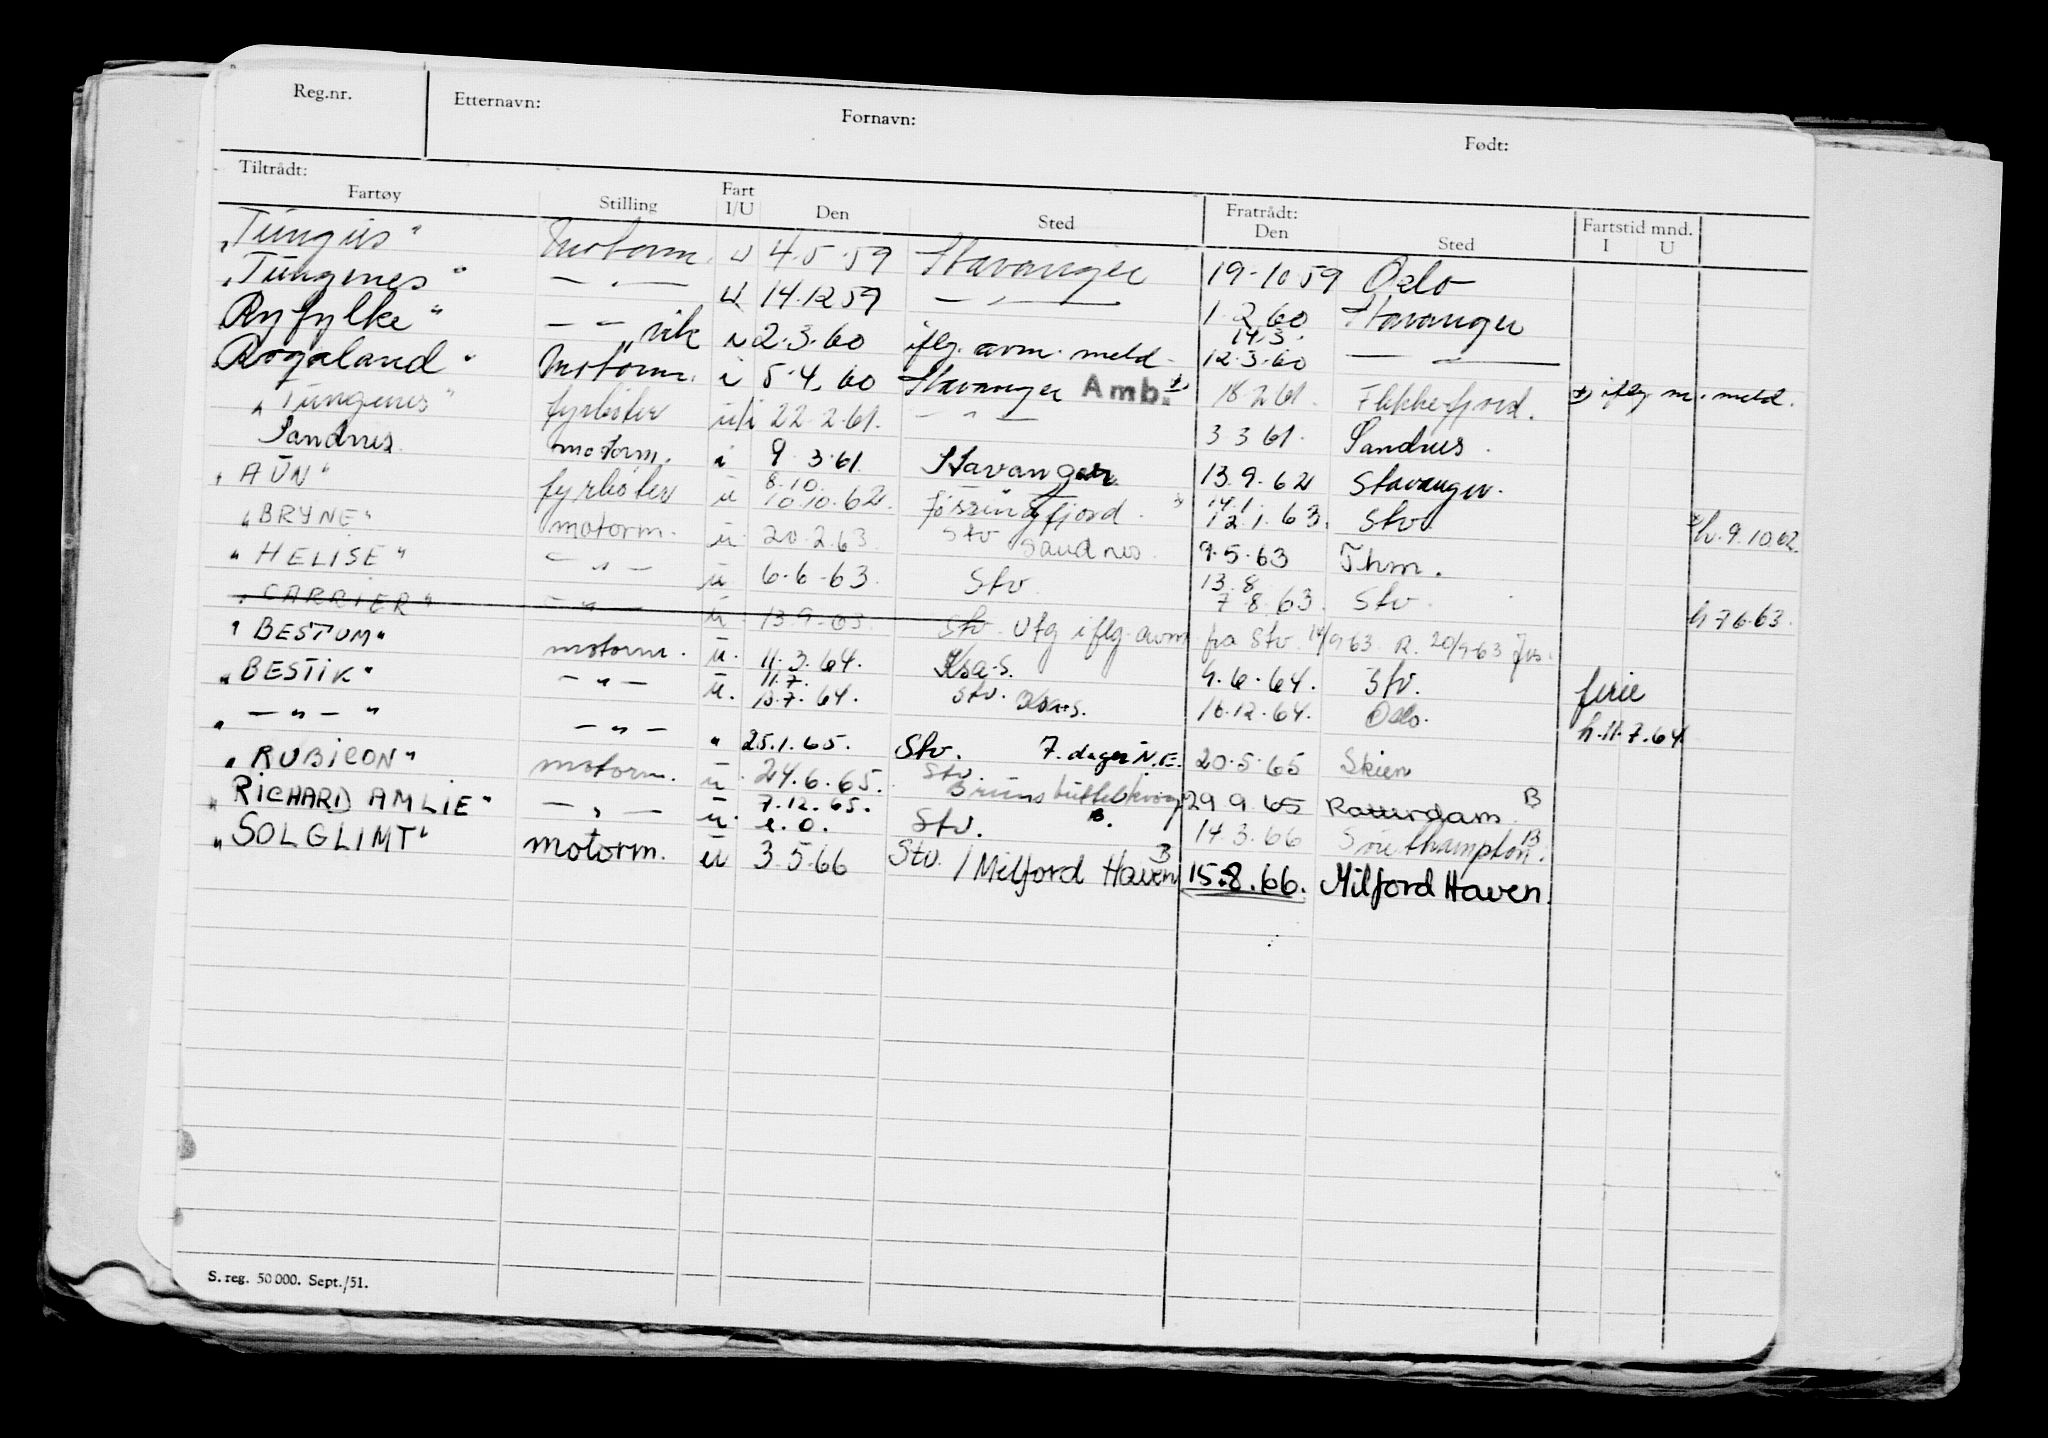 Reg.nr. Etternavn: Fornavn: Født:
Tiltrådt: Fratrådt: Fartstid mnd.
Fartøy Stilling Fart I/U Den Sted Den Sted I U
"Tungus" Motorm. u 4.5.59 Stavanger 19-10 59 Oslo
"Tungenes" — " — u 14.12 59 — " — 1.2 60 Stavanger
Ryfylke" — " — vik i 2.3.60 iflg. avm. meld. 14.3. 12.3.60 — " —
Rogaland" Motorm. i 5.4.60 Stavanger Amb. x) 18.2.61. Flekkefjord. x) iflg m. meld.
"Tungenes" fyrbøter u/i 22.2.61. — " — 3 3 61. Sandnes.
Sandnes motorm. i 9.3.61 Stavanger 13.9.62 Stavanger.
"AUN" fyrbøter u 8.10. 10.10.62. Jøssingfjord. x 14.1. 12.1.63. Stv. x h. 9.10 62.
"BRYNE" motorm. u. 20.2.63. Stv Sandnes. 9.5.63 Thm.
"HELISE" — " — u 6.6-63. Stv 13.8 7 8.63. Stv. h 7 6 63.
"CARRIER" — " — u. 13.9.63. Stv. Utg iflg. avm fra Stv. 14/9 63. R. 20/9-63
"BESTUM" motorm. u. 11.3.64. 4.6.64. Stv. ferie
"BESTIK" — " — u. 11.7. 13.7.64. Stv. 16.12.64. Oslo. h. 11.7.64.
" — " — " — " — " 25.1.65. Stv. 7. dager N.E. 20.5.65 Skien
"RUBICON" motorm. u. 24.6.65. Stv. Brunsbüttelkoog B. 29 9.65 Rotterdam. B
"RICHARD AMLIE" — " — u. 7.12.65. e.o. Stv. 14.3.66 Southampton. B
"SOLGLIMT" motorm. u 3.5.66 Stv. / Milford Haven B 15.8.66. Milford Haven.
S. reg. 50 000. Sept./51.